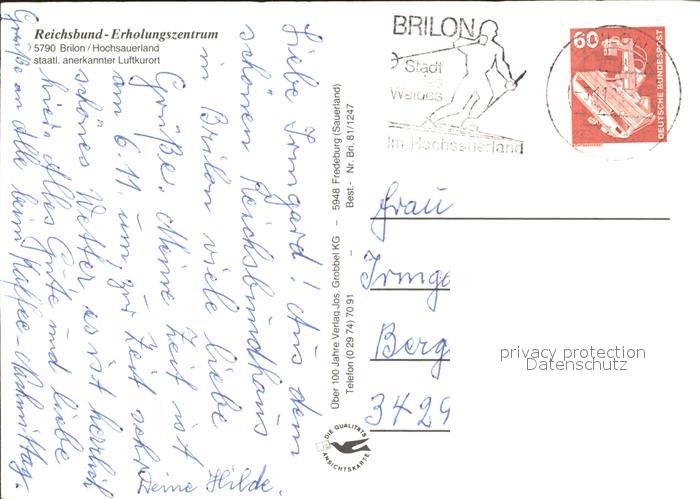 Reichsbund-Erholungszentrum
5790 Brilon / Hochsauerland
staatl. anerkannter Luftkurort
Liebe Irmgard! Aus dem
schönen Reichsbundhaus
in Brilon viele liebe
Grüße. Meine Zeit ist
am 6.11. um, zur Zeit sehr
schönes Wetter, es ist herrlich
hier. Alles Gute und liebe
Grüße an Alle beim Kaffee-Nachmittag.
Deine Hilde.
Über 100 Jahre Verlag Jos. Grobbel KG – 5948 Fredeburg (Sauerland)
Telefon (0 29 74) 70 91 – Best.- Nr. Bri. 81/1247
DIE QUALITÄTS
ANSICHTSKARTE
BRILON
Stadt
des
Waldes
Im Hochsauerland
60
DEUTSCHE BUNDESPOST
Frau
Irmga
Berg
3429
privacy protection
Datenschutz